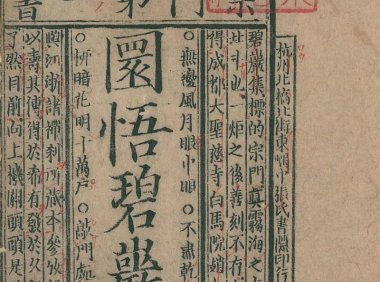 杭州北橋北街東嵎中張氏書隱印行
碧巖集標的宗門眞霧海之
北斗也一炬之後善刻不存
得成都大聖慈寺白馬院
○無邊風月眼中眼○不盡乾
圜悟碧巖
○柳暗花明十萬戶○敲門處
江浙諸禪刹所藏本參攷
以壽其傳得於希有發於久
了然目前向上機關頭頭是